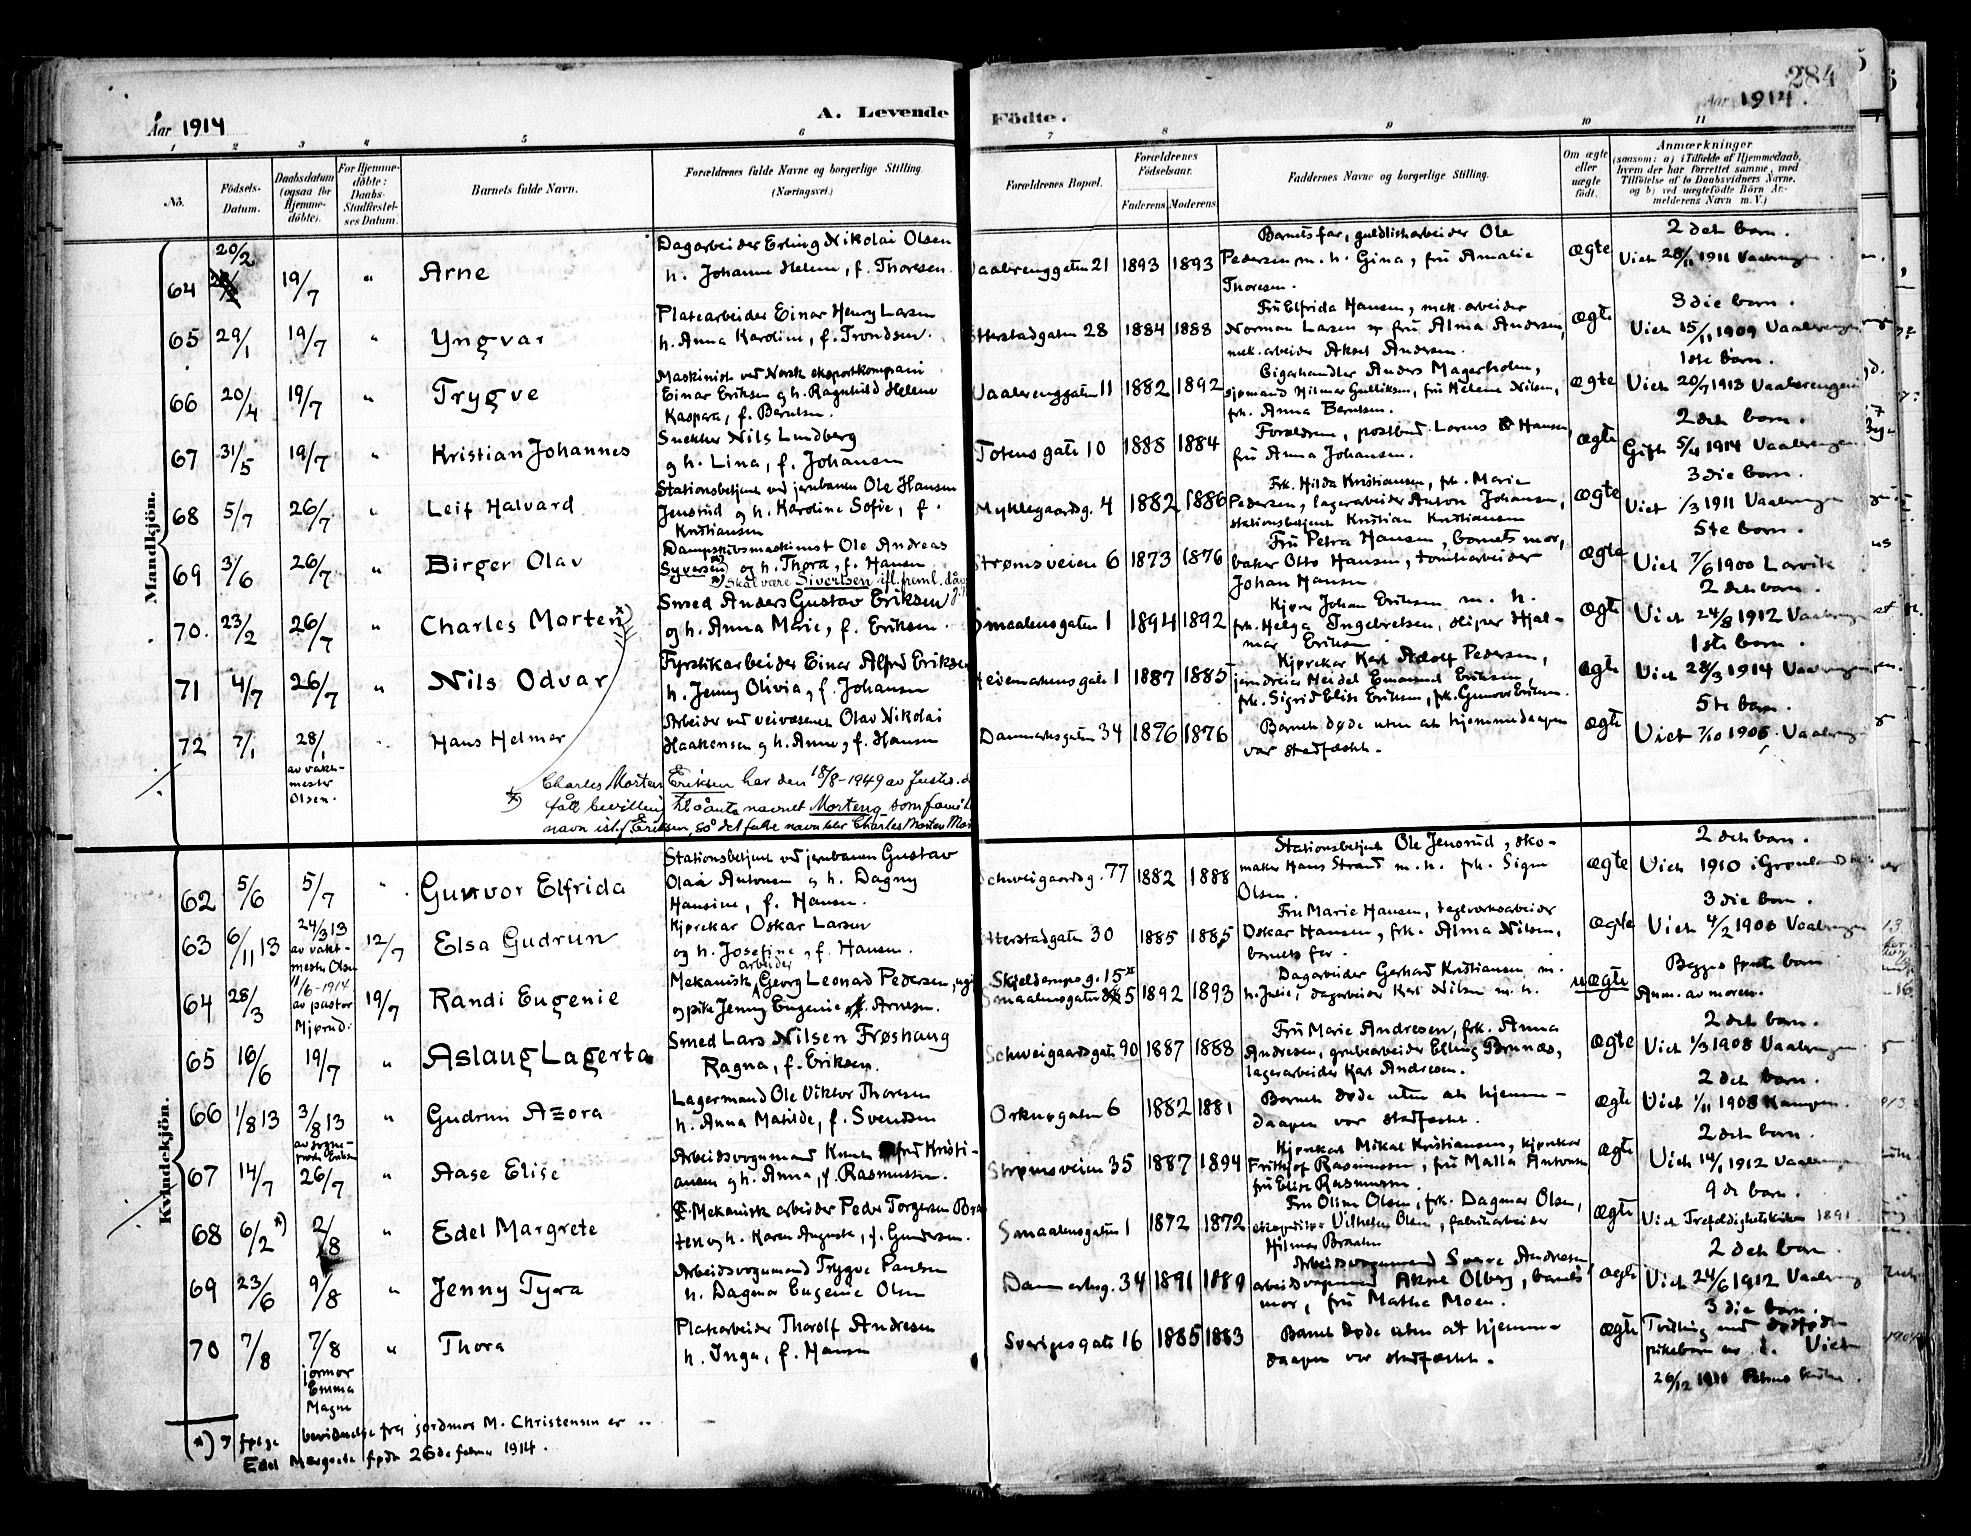 284
Aar 1914
A. Levende Födte.
Aar 1914.
1 2 3 4 5 6 7 8 9 10 11
No.
Födsels-Datum.
Daabsdatum (ogsaa for Hjemme-döbte).
For Hjemme-döbte: Daabs-Stadfæstel-ses Datum.
Barnets fulde Navn.
Forældrenes fulde Navne og borgerlige Stilling (Næringsvei.)
Forældrenes Bopæl.
Forældrenes Födselsaar.
Faderens Moderens
Faddernes Navne og borgerlige Stilling.
Om ægte eller uægte födt.
Anmærkninger
(saasom: a) i Tilfælde af Hjemmedaab, hvem der har forrettet samme, med Tilföielse af to Daabsvidners Navne, og b) ved uægtefödte Börn An-melderens Navn m. V.)
Mandkjön.
64 20/2 19/7 " Arne
Dagarbeider Erling Nikolai Olsen
h. Johanne Helene, f. Thoresen.
Vaalerenggaten 21 1893 1893
Barnets far, guldlistarbeider Ole
Pedersen m. h. Gina, frü Amalie
Thoresen.
ægte
2 det barn.
Viet 28/11 1911 Vaalerengen.
65 29/1 19/7 " Yngvar
Platearbeider Einar Henry Larsen
h. Anna Karoline, f. Trondsen.
Etterstadgaten 28 1884 1888
Frü Elfrida Hansen, mek. arbeider
Norman Larsen og frü Alma Andersen,
mek. arbeider Aksel Andersen.
ægte
3 die barn.
Viet 15/11 1909 Vaalerengen
66 20/4 19/7 " Trygve
Maskinist ved Norsk eksportkompani
Einar Eriksen og h. Ragnhild Helene
Kaspara, f. Berntsen.
Vaalerenggaten 11 1882 1892
Cigarhandler Anders Magerholm,
sjømand Hilmar Gulliksen, frü Helene Nilsen,
frk. Anna Berntsen.
ægte
1ste barn.
Viet 20/7 1913 Vaalerengen
67 31/5 19/7 " Kristian Johannes
Snekker Nils Lundberg
og h. Lina, f. Johansen
Totensgate 10 1888 1884
Forældrene, postbud Lorens Hansen,
frü Anna Johansen.
ægte
2 det barn.
Gift 5/4 1914 Vaalerengen
68 5/7 26/7 " Leif Halvard
Stationsbetjent ved jernbanen Ole Hansen
Jensrud og h. Karoline Sofie, f.
Kristiansen
Myklegaardsg. 4 1882 1886
Frk. Hilda Kristiansen, frk. Marie
Pedersen, lagerarbeider Anton Johansen,
stationsbetjent Kristian Kristiansen
ægte
3 die barn.
Viet 1/3 1911 Vaalerengen
69 3/6 26/7 " Birger Olav
Dampskibsmaskinist Ole Andreas
Syversen x) og h. Thora, f. Hansen
x) Skal være Sivertsen ifl. freml. dåp
Strømsveien 6 1873 1876
Frü Petra Hansen, barnets mor,
baker Otto Hansen, tomtearbeider
Johan Hansen.
ægte
5te barn.
Viet 7/6 1900 Larvik
70. 23/2 26/7 " Charles Morten x)
Smed Anders Gustav Eriksen
og h. Anna Marie, f. Eriksen.
Smaalensgaten 1 1894 1892
Kjører Johan Eriksen m. h.
frk. Helga Ingebretsen, sliper Hjal-
mar Eriksen
ægte
2 det barn.
Viet 24/8 1912 Vaalerengen
71 4/7 26/7 " Nils Odvar
Fyrstikarbeider Einar Alfred Eriksen
h. Jenny Olivia, f. Johansen
Hedemarkensgate 1 1887 1885
Kjørekar Karl Adolf Pedersen,
jerndreier Heidel Emanuel Eriksen,
frk. Sigrid Elise Eriksen, frk. Gunvor Eriksen.
ægte
1 ste barn.
Viet 28/3 1914 Vaalerengen.
72 7/1 28/1 av vakt-mester Olsen. Hans Helmer
Arbeider ved veivæsenet Olav Nikolai
Haakensen og h. Anne, f. Hansen
Danmarksgaten 34 1876 1876
Barnet døde uten at hjemmedaapen
var stadfæstet.
ægte
5te barn.
Viet 7/10 1906 Vaalereng
x) Charles Morten Eriksen har den 18/8-1949 av Justis.d
fått bevilling til å anta navnet Morteng som famili
navn ist.f. Eriksen, så det fulle navn blir Charles Morten Mor
Kvindekjön.
62 5/6 5/7 " Gunvor Elfrida
Stationsbetjent ved jernbanen Gustav
Olai Antonsen og h. Dagny
Hansine, f. Hansen.
Schweigaardsg. 77 1882 1888
Stationsbetjent Ole Jensrud, sko-
maker Hans Strand m. h. frk. Signe
Olsen.
ægte
2 det barn.
Viet 1910 i Grønland
63 6/11 13 24/3 13 av vakt-mester Olsen 12/7 Elsa Gudrun
Kjørekar Oskar Larsen
og h. Josefine, f. Hansen.
Etterstadgaten 30 1885 1885
Frü Marie Hansen, teglverksarbeider
Oskar Hansen, frk. Alma Nilsen,
barnets far.
ægte
3 die barn.
Viet 4/2 1906 Vaalerengen
64 28/3 11/6-1914 av pastor Mjørud. 19/7 Randi Eugenie
Mekanisk arbeider Georg Leonad Pedersen, ugi
og pike Jenny Eugenie Arnesen.
Skjeldernpeg. 15
Smaalensgaten 5 1892 1893
Dagarbeider Gerhard Kristiansen m.
h. Julie, dagarbeider Karl Nilsen m. h.
uægte
Begges første barn
Anm. av moren.
65 16/6 19/7 " Aslaug Lagerta
Smed Lars Nilsen Frøshaug
Ragna, f. Eriksen.
Schweigaardsgate 90 1887 1888
Frü Marie Andresen, frk. Anna
Andresen, grubearbeider Elling Brunæs,
lagerarbeider Karl Andresen.
ægte
2 det barn.
Viet 1/3 1908 Vaalerengen
66 1/8 13 3/8 13 av sogne-prest Eriksen " Gudrun Azora
Lagermand Ole Viktor Thoresen
h. Anna Matilde, f. Svendsen
Orknøgaten 6 1882 1881
Barnet døde uten at hjemme-
daapen var stadfæstet.
ægte
2 det barn.
Viet 1/11 1908 Kampen.
67 14/7 26/7 " Aase Elise
Arbeidsvognmand Knut Alfred Kristi-
ansen og h. Anna, f. Rasmussen.
Strømsveien 35 1887 1894
Kjørekar Mikal Kristiansen, kjørekar
Frithjof Rasmussen, frü Malla Antonsen
frü Elise Rasmussen.
ægte
2 det barn.
Viet 14/1 1912 Vaalerengen
68 6/2 x) 2/8 " Edel Margrete
Mekanisk arbeider Peder Torgersen Braa
ten og h. Karen Auguste, f. Gundersen.
Smaalensgaten 1 1872 1872
Frü Oline Olsen, frk. Dagmar Olsen,
ekspeditør Vilhelm Olsen, fabrikarbeider
Hilmar Braaten
ægte
9 de barn.
Viet Trefoldighetskirken 1891
69 23/6 9/8 " Jenny Tyra
Arbeidsvognmand Trygve Paulsen
h. Dagmar Eugenie Olsen
Danmarksg. 34 1891 1889
Arbeidsvognmand Sverre Andresen,
arbeidsvognmand Aksel Olberg, barnets
mor, frü Martha Moen.
ægte
2 det barn
Viet 24/6 1912 Vaalereng
70 7/8 7/8 jormor Emma Magne " Thora
Platearbeider Thorolf Andresen
h. Inga, f. Hansen
Sverigesgate 16 1885 1883
Barnet døde uten at hjemme-
daapen var stadfæstet.
ægte
3 die barn.
Tvilling med dødfødt
pikebarn Viet
26/12 Petrus kirke.
x) Ifølge bevidnelse fra jordmor M. Christensen er
Edel Margrete født 26de februar 1914.